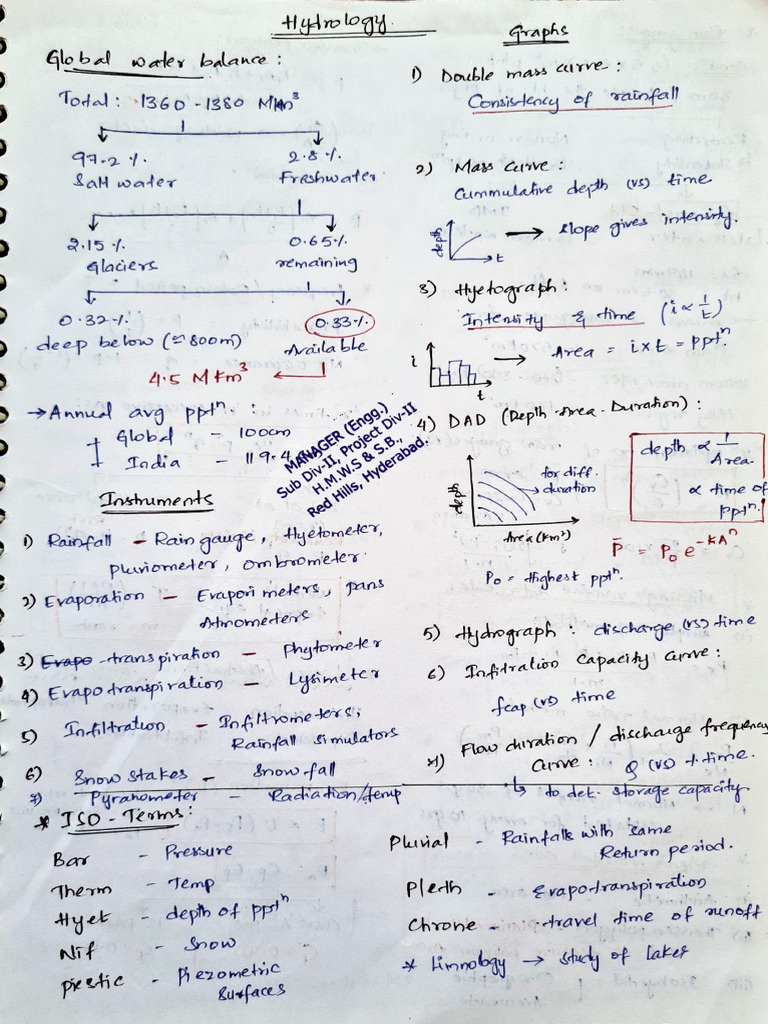 Hydrology
Global water balance :
Total : 1360 - 1380 Mkm³
97.2 %. 2.8 %.
Salt water Freshwater
2.15 %. 0.65 %.
Glaciers remaining
0.32 %. 0.33 %.
deep below (≃ 800m) Available
4.5 M Km³
→ Annual avg pptⁿ. :
Global - 100cm
India - 119.4
MANAGER (Engg.)
Sub Div-II, Project Div-II
H.M.W.S & S.B.,
Red Hills, Hyderabad.
Instruments
1) Rainfall - Rain gauge, Hyetometer,
pluviometer, ombrometer.
2) Evaporation - Evaporimeters, pans
Atmometers
3) Evapo-transpiration - Phytometer
4) Evapotranspiration - Lysimeter
5) Infiltration - Infiltrometers,
Rainfall simulators
6) Snow stakes - Snow fall
7) Pyranometer - Radiation/temp
* ISO - Terms :
Bar - Pressure
Therm - Temp
Hyet - depth of pptⁿ
Nif - Snow
piestic - Piezometric
Surfaces
Graphs
1) Double mass curve :
Consistency of rainfall
2) Mass curve :
Cummulative depth (vs) time
depth
t
→ slope gives intensity.
3) Hyetograph :
Intensity & time (i ∝ 1/t)
i
t
→ Area = i x t = pptⁿ.
4) DAD (Depth - Area - Duration) :
depth
Area (km²)
for diff.
duration
depth ∝ 1/Area
∝ time of
pptⁿ.
P̄ = P₀ e^-KAⁿ
P₀ = Highest pptⁿ.
5) Hydrograph : discharge (vs) time
6) Infiltration capacity curve :
fcap (vs) time
7) Flow duration / discharge frequency
curve : Q (vs) %. time.
↳ to det. storage capacity.
Pluvial - Rainfalls with same
Return period.
Pleth - Evapotranspiration
Chrone - travel time of runoff
* limnology → study of lakes